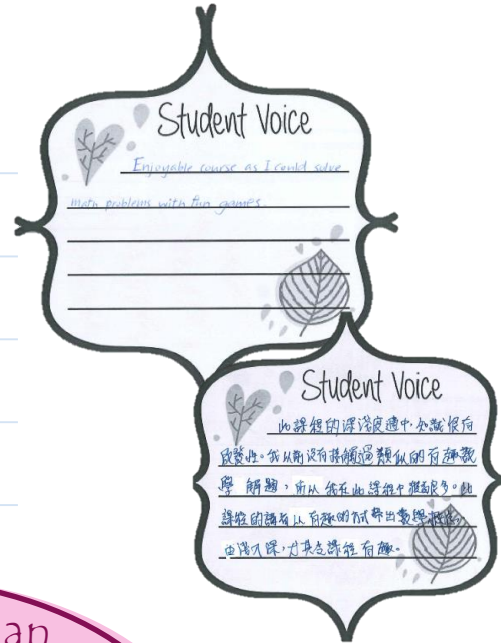 Student Voice
Enjoyable course as I could solve
math problems with fun games.
Student Voice
此課程的深淺度適中,知識很有
啟發性。我以前沒有接觸過類似的有趣數
學解題,所以我在此課程中獲益良多。此
課程的講者以有趣的方式帶出數學概念,
由淺入深,尤其是課程有趣。
an